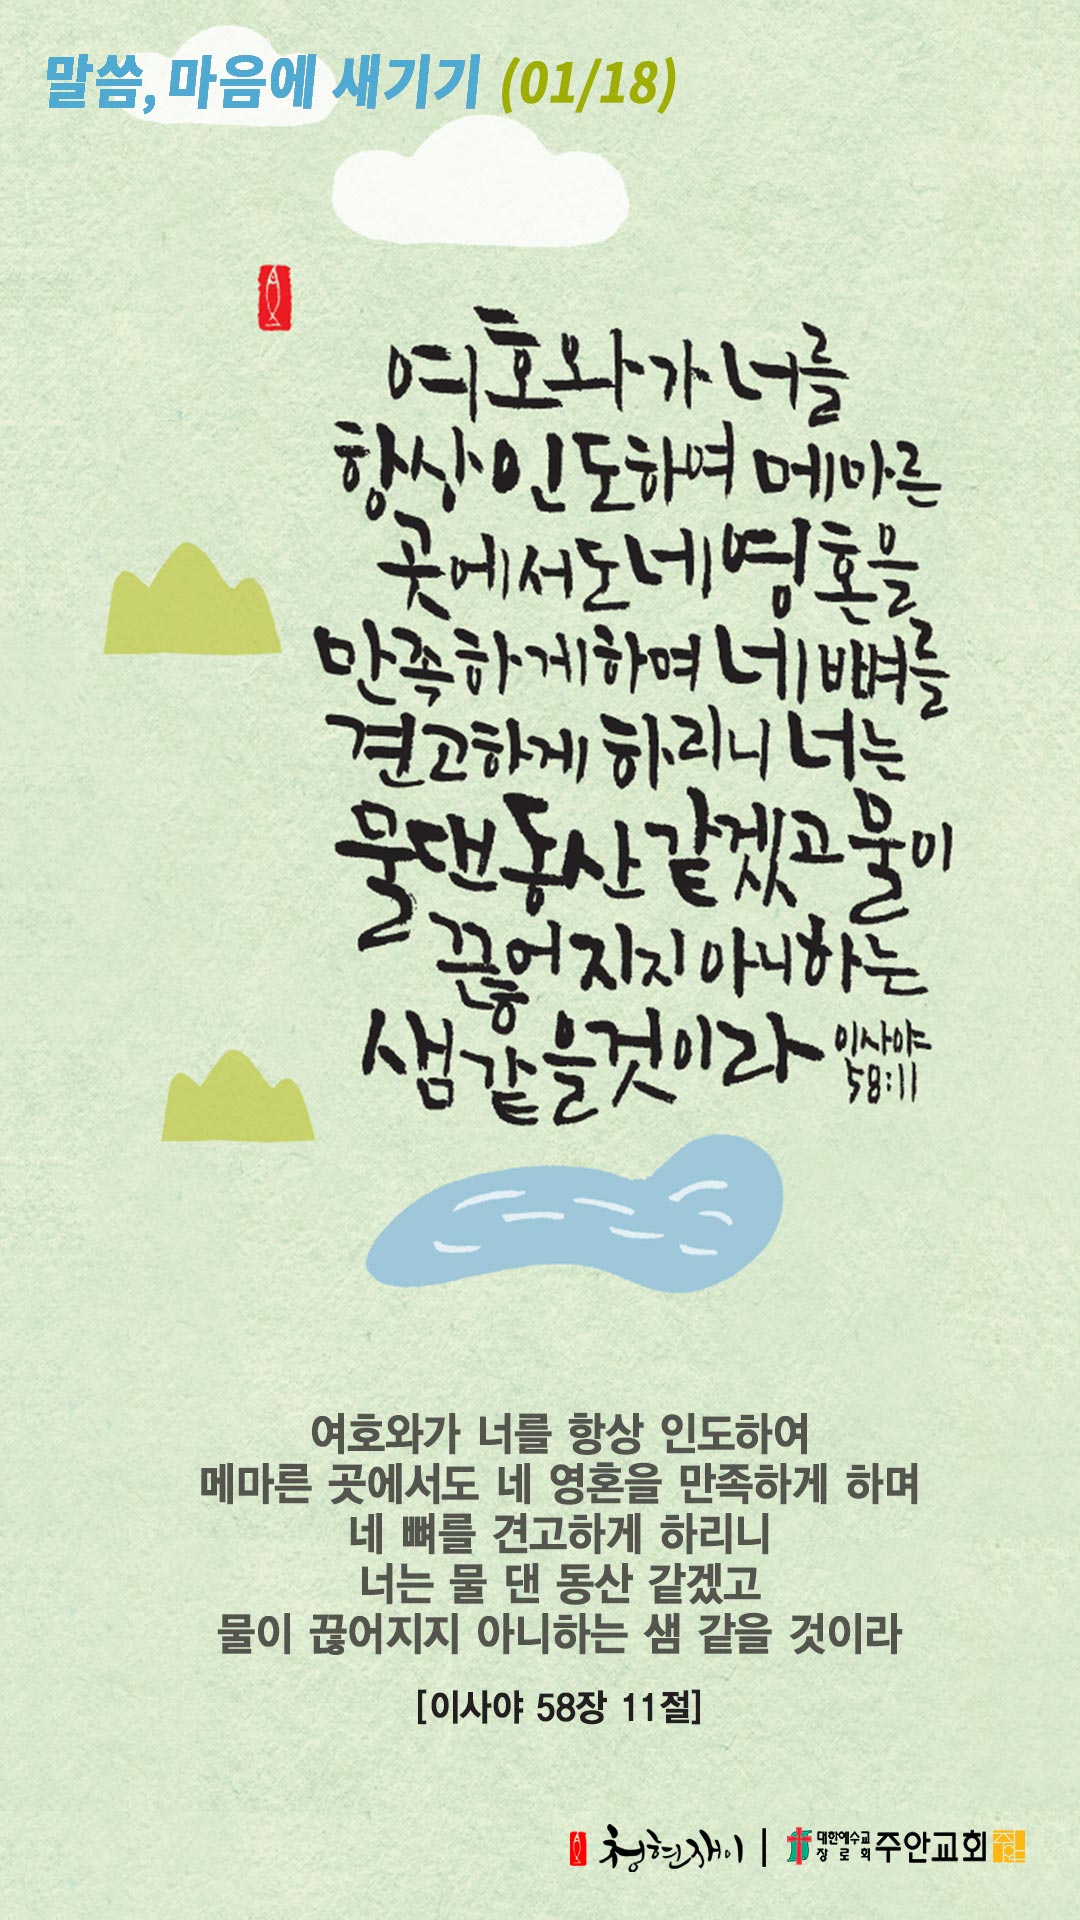 말씀, 마음에 새기기 (01/18)
여호와가 너를
항상 인도하여 메마른
곳에서도 네 영혼을
만족하게 하며 네 뼈를
견고하게 하리니 너는
물 댄 동산 같겠고 물이
끊어지지 아니하는
샘 같을 것이라
이사야
58:11
여호와가 너를 항상 인도하여
메마른 곳에서도 네 영혼을 만족하게 하며
네 뼈를 견고하게 하리니
너는 물 댄 동산 같겠고
물이 끊어지지 아니하는 샘 같을 것이라
[이사야 58장 11절]
청현재이 | 대한예수교 장로회 주안교회